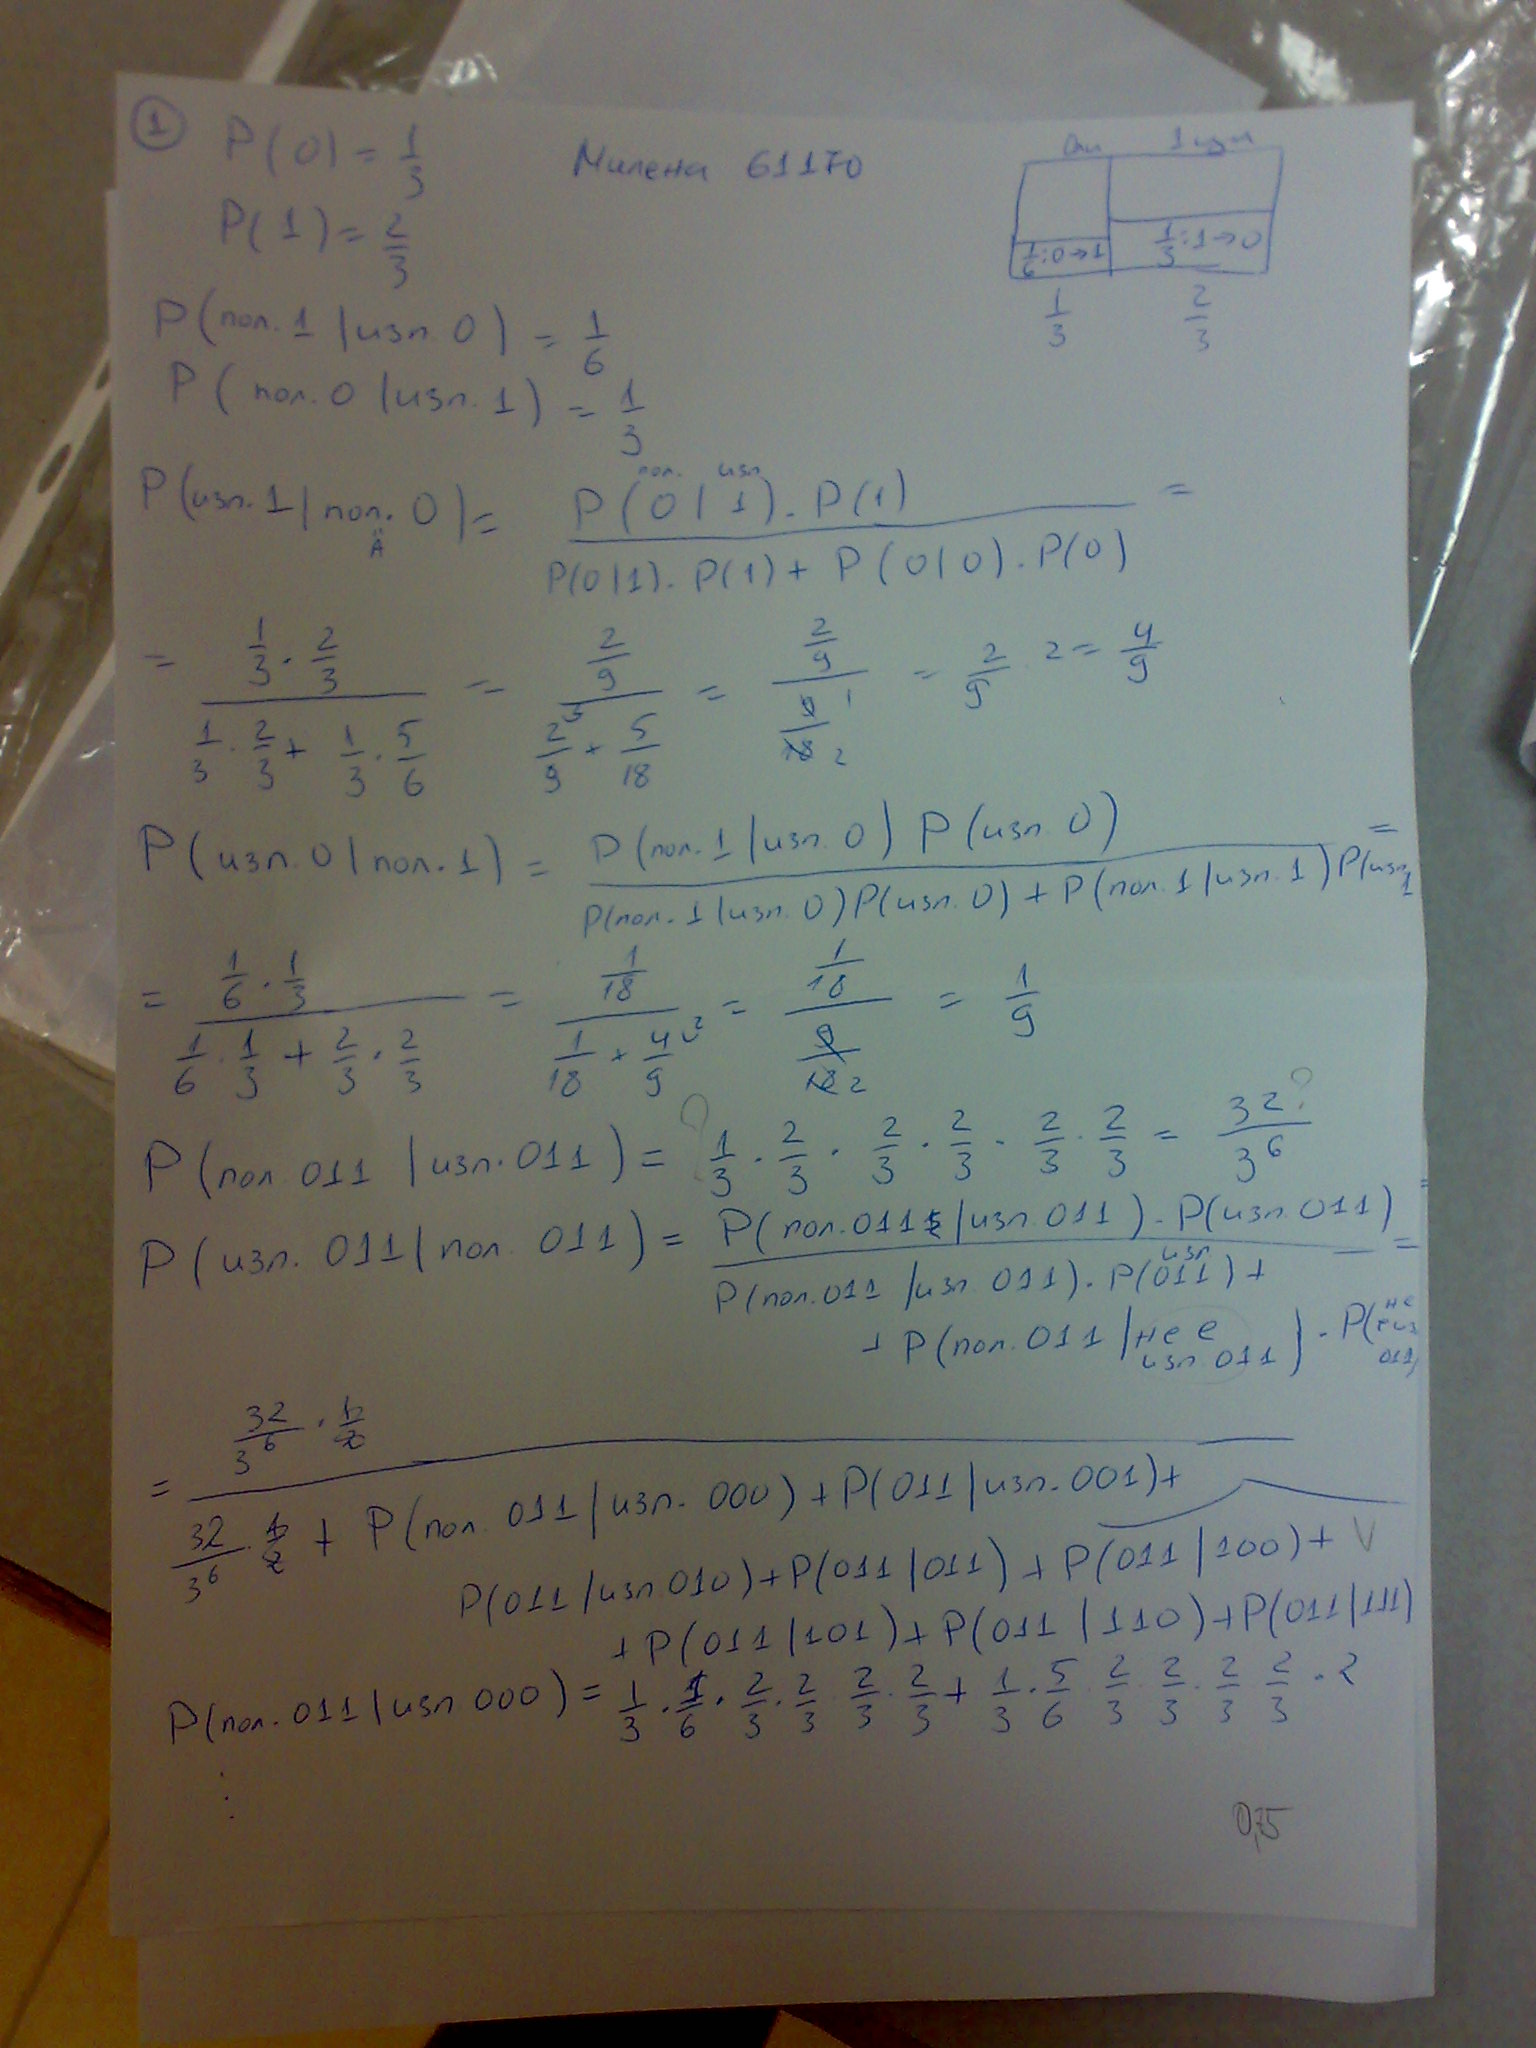 ① P(0) = 1/3 Милена 61170
P(1) = 2/3
0 1
1/6 : 0→1 1/3 : 1→0
1/3 2/3
P(пол. 1 | изп. 0) = 1/6
P(пол. 0 | изп. 1) = 1/3
пол. изп
P(изп. 1 | пол. 0) = P(0 | 1) . P(1) / P(0|1) . P(1) + P(0|0) . P(0) =
A
= 1/3 . 2/3 / 1/3 . 2/3 + 1/3 . 5/6 = 2/9 / 2/9 + 5/18 = 2/9 / 9/18 1 2 = 2/9 . 2 = 4/9
P(изп. 0 | пол. 1) = P(пол. 1 | изп. 0) P(изп. 0) / P(пол. 1 | изп. 0) P(изп. 0) + P(пол. 1 | изп. 1) P(изп. 1 =
= 1/6 . 1/3 / 1/6 . 1/3 + 2/3 . 2/3 = 1/18 / 1/18 + 4/9 = 1/18 / 9/18 2 = 1/9
P(пол 011 | изп. 011) = ? 1/3 . 2/3 . 2/3 . 2/3 . 2/3 . 2/3 = 32/3^6 ?
P(изп. 011 | пол. 011) = P(пол. 011 | изп. 011) . P(изп. 011) / P(пол. 011 | изп 011) . P(изп 011) + =
+ P(пол. 011 | не е изп 011) . P(не е изп 011)
= 32/3^6 . / 32/3^6 . + P(пол. 011 | изп. 000) + P(011 | изп. 001) +
P(011 | изп 010) + P(011 | 011) + P(011 | 100) + V
+ P(011 | 101) + P(011 | 110) + P(011 | 111)
P(пол. 011 | изп 000) = 1/3 . 1/6 . 2/3 . 2/3 . 2/3 . 2/3 + 1/3 . 5/6 . 2/3 . 2/3 . 2/3 . 2/3 . 2
⋮